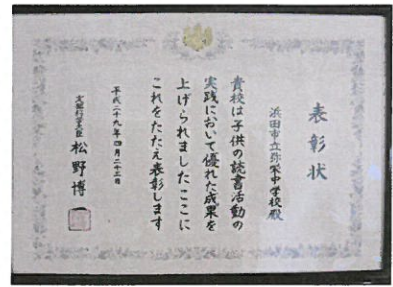 表彰状
浜田市立弥栄中学校殿
貴校は子供の読書活動の
実践において優れた成果を
上げられましたここに
これをたたえ表彰します
平成二十九年四月二十三日
文部科学大臣 松野博一